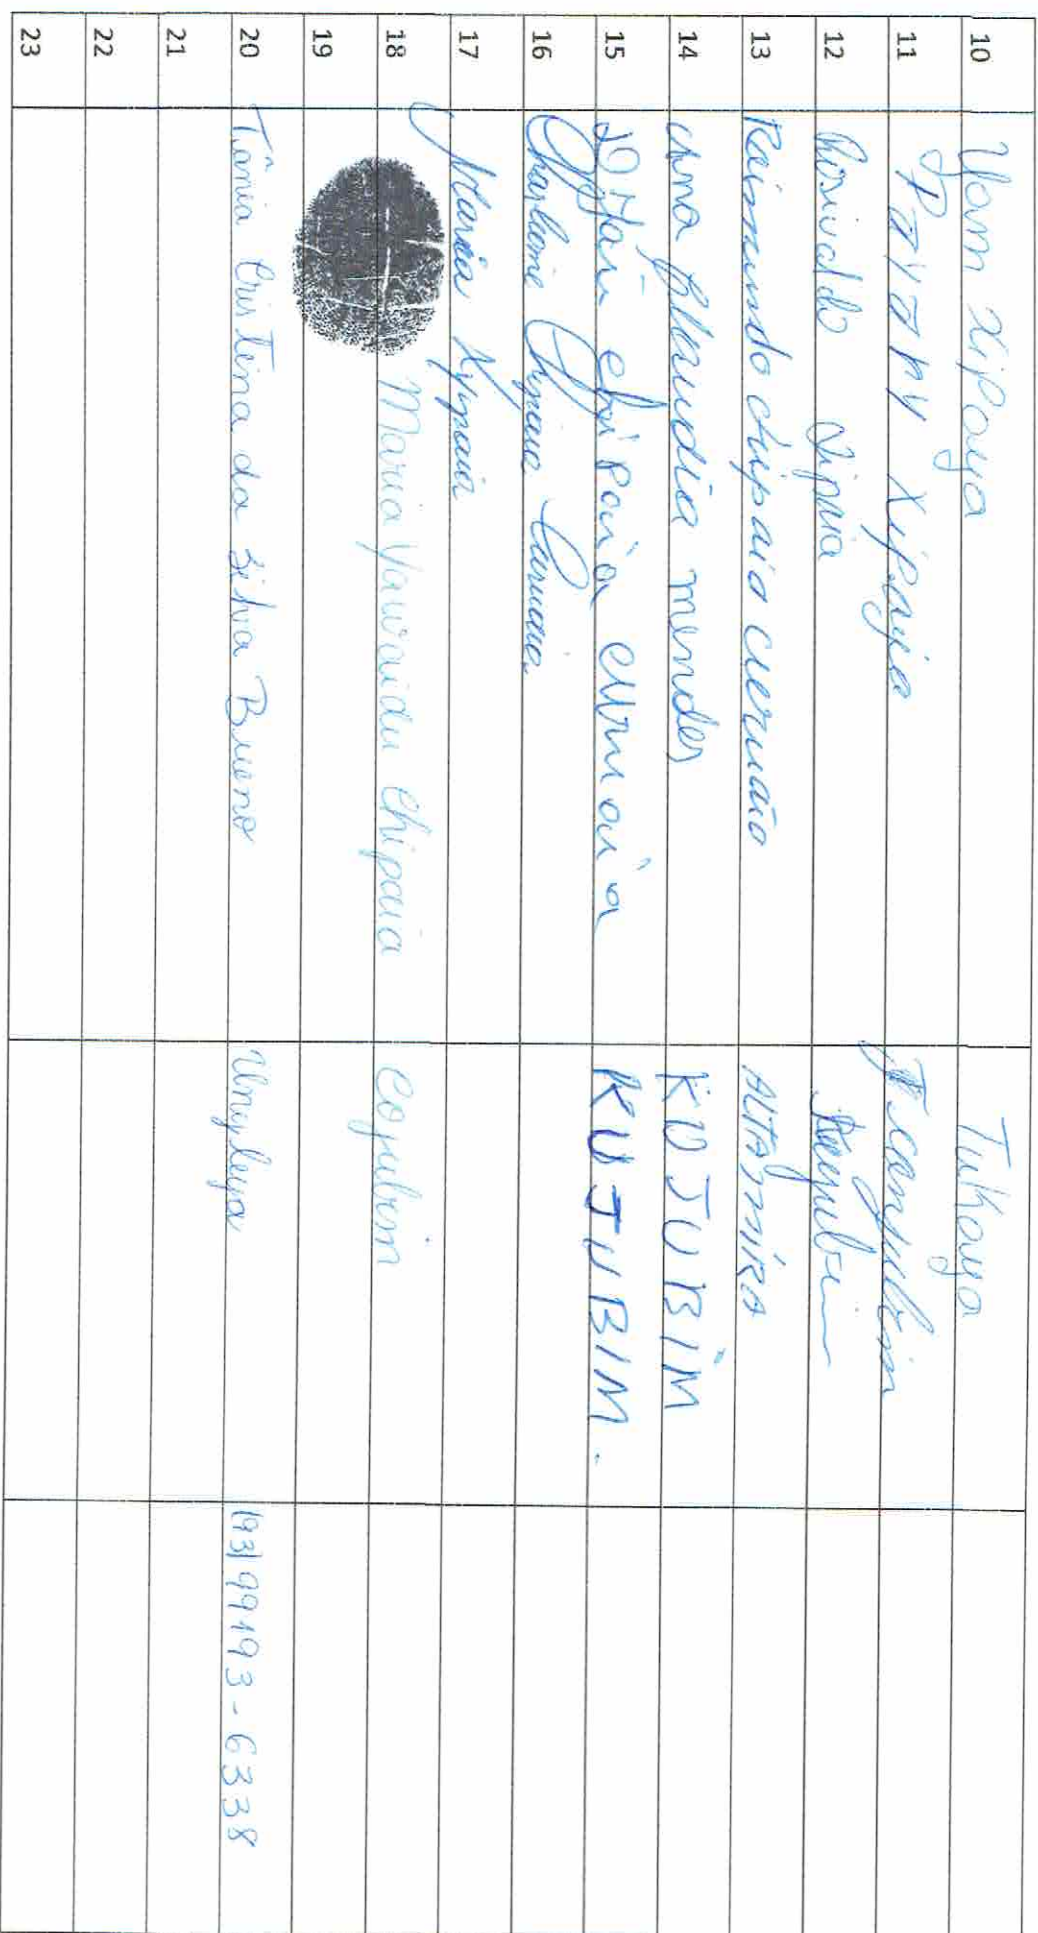 10 Yam Xipaya Tukaya
11 Xipaya
12 Rosivaldo Xipaia
13 Raimundo chipaia curuaia ALTAmiRA
14 Ana Claudia mendes KUJUBIM
15 chipaia curuaia KUJUBIM.
16 Charlene Chipaia Curuaia
17 Maria Xypaia
18 Maria Chipaia Cojubim
19
20 Tânia Cristina da Silva Bueno Unyleya (93) 99193-6338
21
22
23